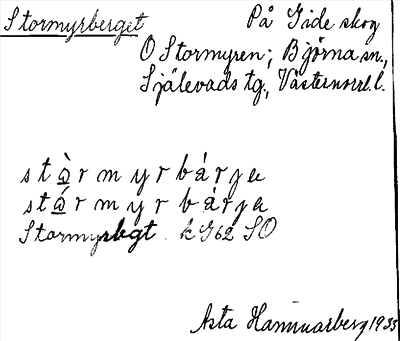 Stormyrberget På Gide skog
O Stormyren; Björna sn.,
Själevads tg., Västernorrl. l.
stɷ̀rmyrbárja
stɷ́rmyrbárja
Stormyrbgt. kG62 SO
Asta Hammarberg 1933